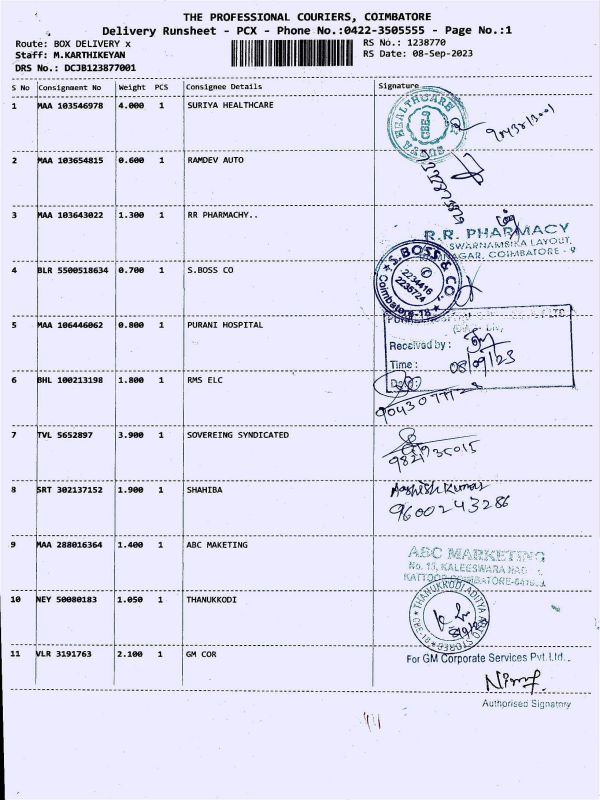 THE PROFESSIONAL COURIERS, COIMBATORE
Delivery Runsheet - PCX - Phone No.:0422-3505555 - Page No.:1
Route: BOX DELIVERY x
Staff: M.KARTHIKEYAN
DRS No.: DCJB123877001
RS No.: 1238770
RS Date: 08-Sep-2023
S No Consignment No Weight PCS Consignee Details Signature
1 MAA 103546978 4.000 1 SURIYA HEALTHCARE
2 MAA 103654815 0.600 1 RAMDEV AUTO
3 MAA 103643022 1.300 1 RR PHARMACHY..
R.R. PHARMACY
SWARNAMBIKA LAYOUT,
NAGAR, COIMBATORE - 9
4 BLR 5500518634 0.700 1 S.BOSS CO
S.BOSS & CO.
2234416
2235724
Coimbatore-18
5 MAA 106446062 0.800 1 PURANI HOSPITAL
Received by :
Time : 08/09/23
Date:
6 BHL 100213198 1.800 1 RMS ELC
7 TVL 5652897 3.900 1 SOVEREING SYNDICATED
8 SRT 302137152 1.900 1 SHAHIBA
Aashish Kumar
9600243286
9 MAA 288016364 1.400 1 ABC MAKETING
ABC MARKETING
No. 15, KALEESWARA NAG
10 NEY 50080183 1.050 1 THANUKKODI
THANUKKODI ADITYA
11 VLR 3191763 2.100 1 GM COR
For GM Corporate Services Pvt.Ltd.,
Authorised Signatory